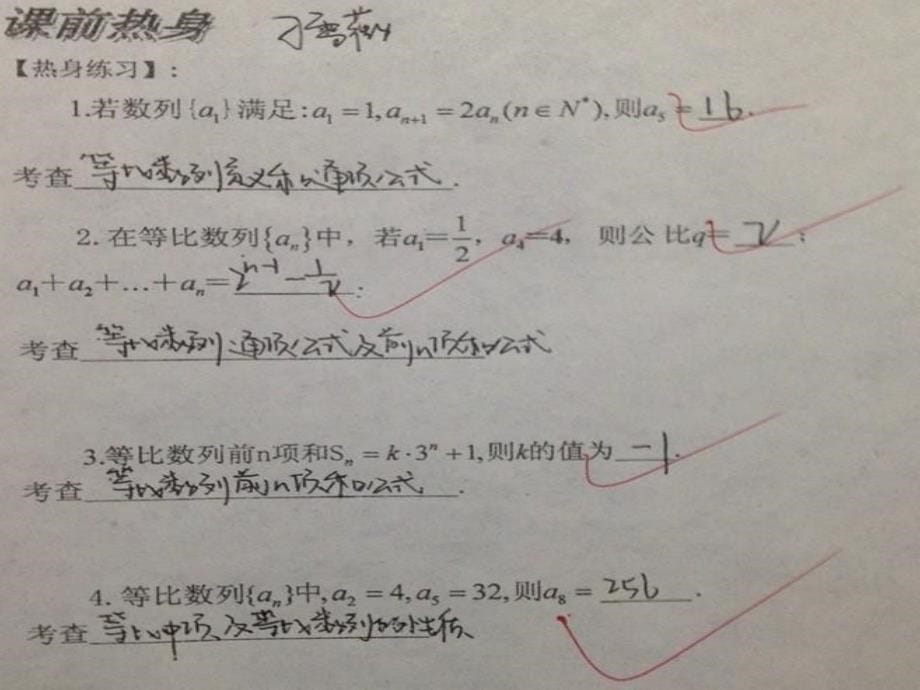 课前热身
【热身练习】:
1.若数列{a₁}满足:a₁=1,aₙ₊₁=2aₙ(n∈N*),则a₅=16.
考查等比数列定义和通项公式.
2.在等比数列{aₙ}中，若a₁=1/2，a₄=4， 则公比q=2；
a₁+a₂+…+aₙ=2ⁿ⁻¹-1/2；
考查等比数列通项公式及前n项和公式
3.等比数列前n项和Sₙ=k·3ⁿ+1,则k的值为-1.
考查等比数列前n项和公式.
4.等比数列{aₙ}中,a₂=4,a₅=32,则a₈=256.
考查等比中项及等比数列的性质